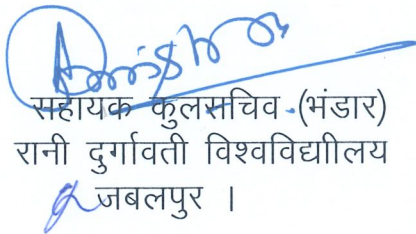 सहायक कुलसचिव (भंडार)
रानी दुर्गावती विश्वविद्याीलय
जबलपुर ।